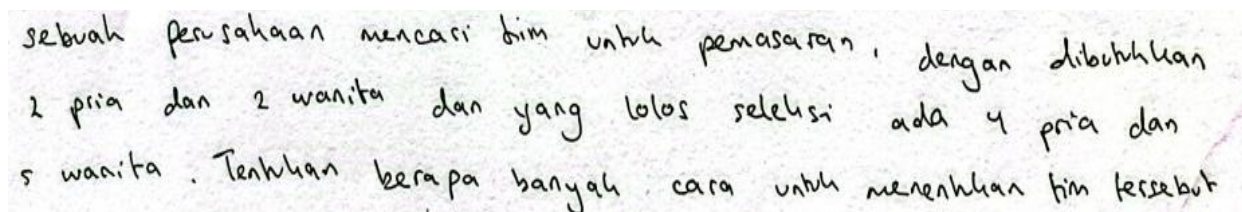 sebuah perusahaan mencari tim untuk pemasaran, dengan dibutuhkan
2 pria dan 2 wanita dan yang lolos seleksi ada 4 pria dan
5 wanita. Tentukan berapa banyak cara untuk menentukan tim tersebut